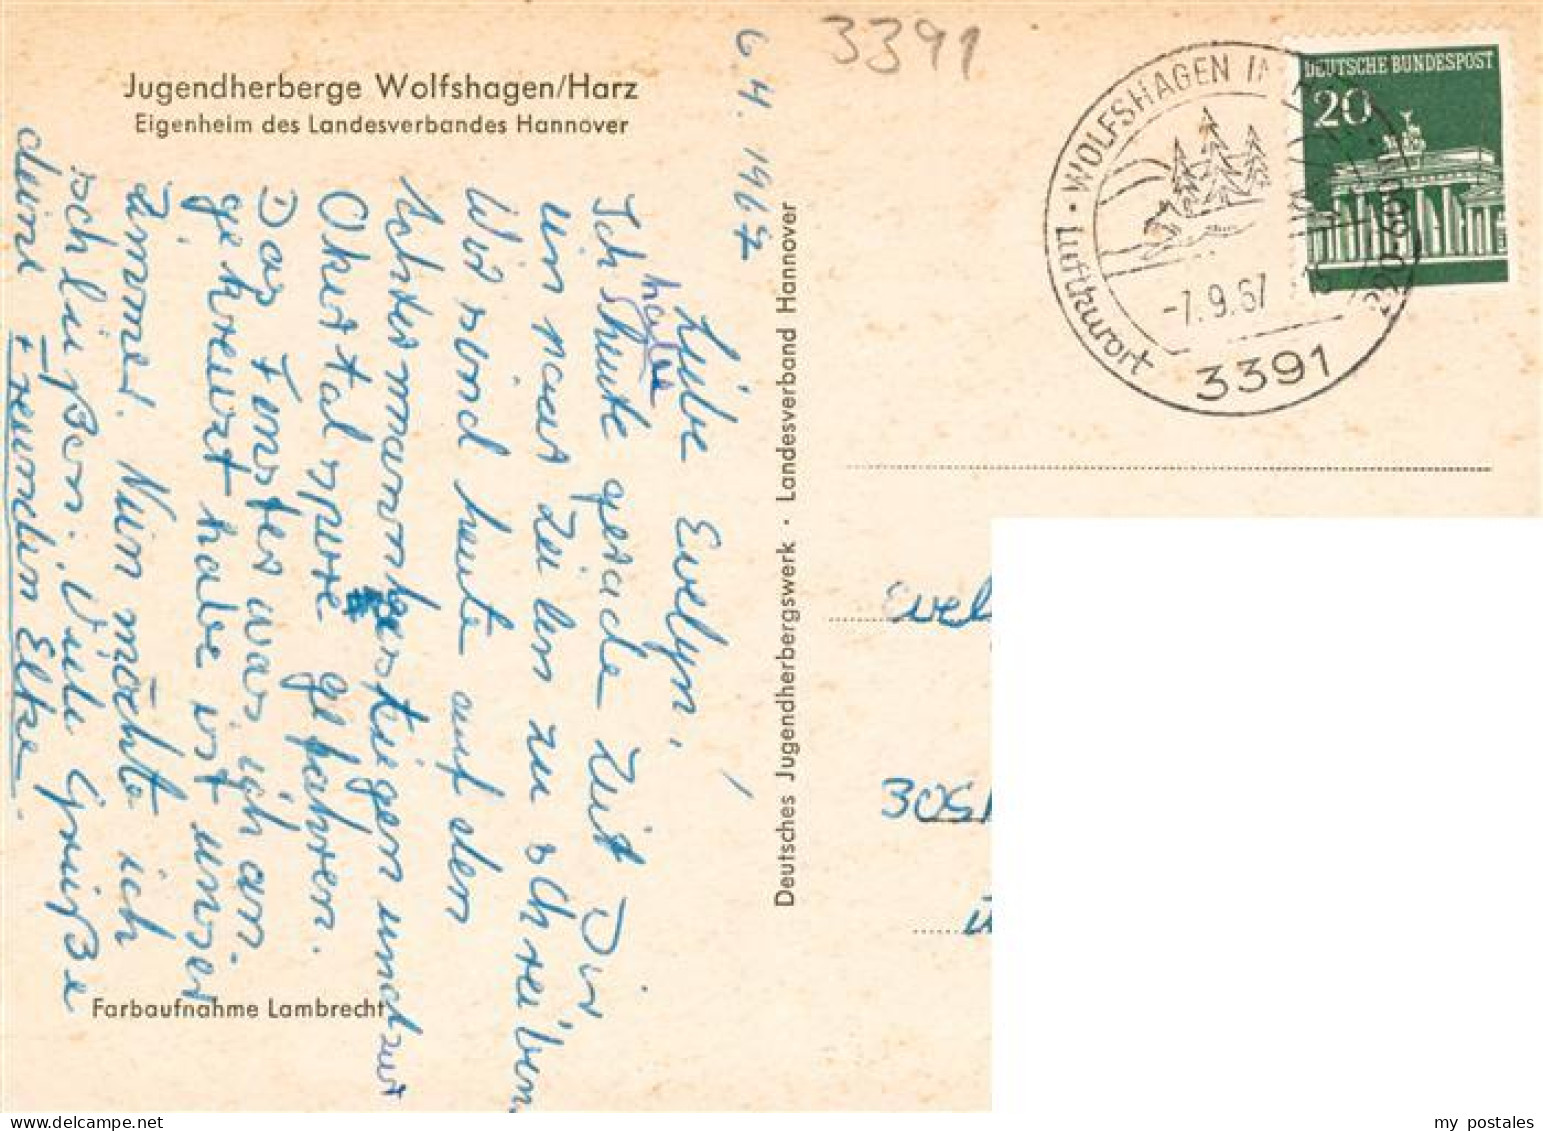 Jugendherberge Wolfshagen/Harz
Eigenheim des Landesverbandes Hannover
6.4.1967
Liebe Evelyn,
Ich habe
heute gerade Zeit Dir
ein paar Zeilen zu schreiben.
Wir sind heute auf den
Achtermann gestiegen und zur
Okertalsperre gefahren.
Das Fenster was ich an-
gekreuzt habe ist unser
Zimmer. Nun möchte ich
schließen. Viele Grüße
deine Freundin Elke.
Farbaufnahme Lambrecht
Deutsches Jugendherbergswerk · Landesverband Hannover
3391
WOLFSHAGEN IM
Luftkurort
-7.9.67
3391
DEUTSCHE BUNDESPOST
20
Evel
305
my postales